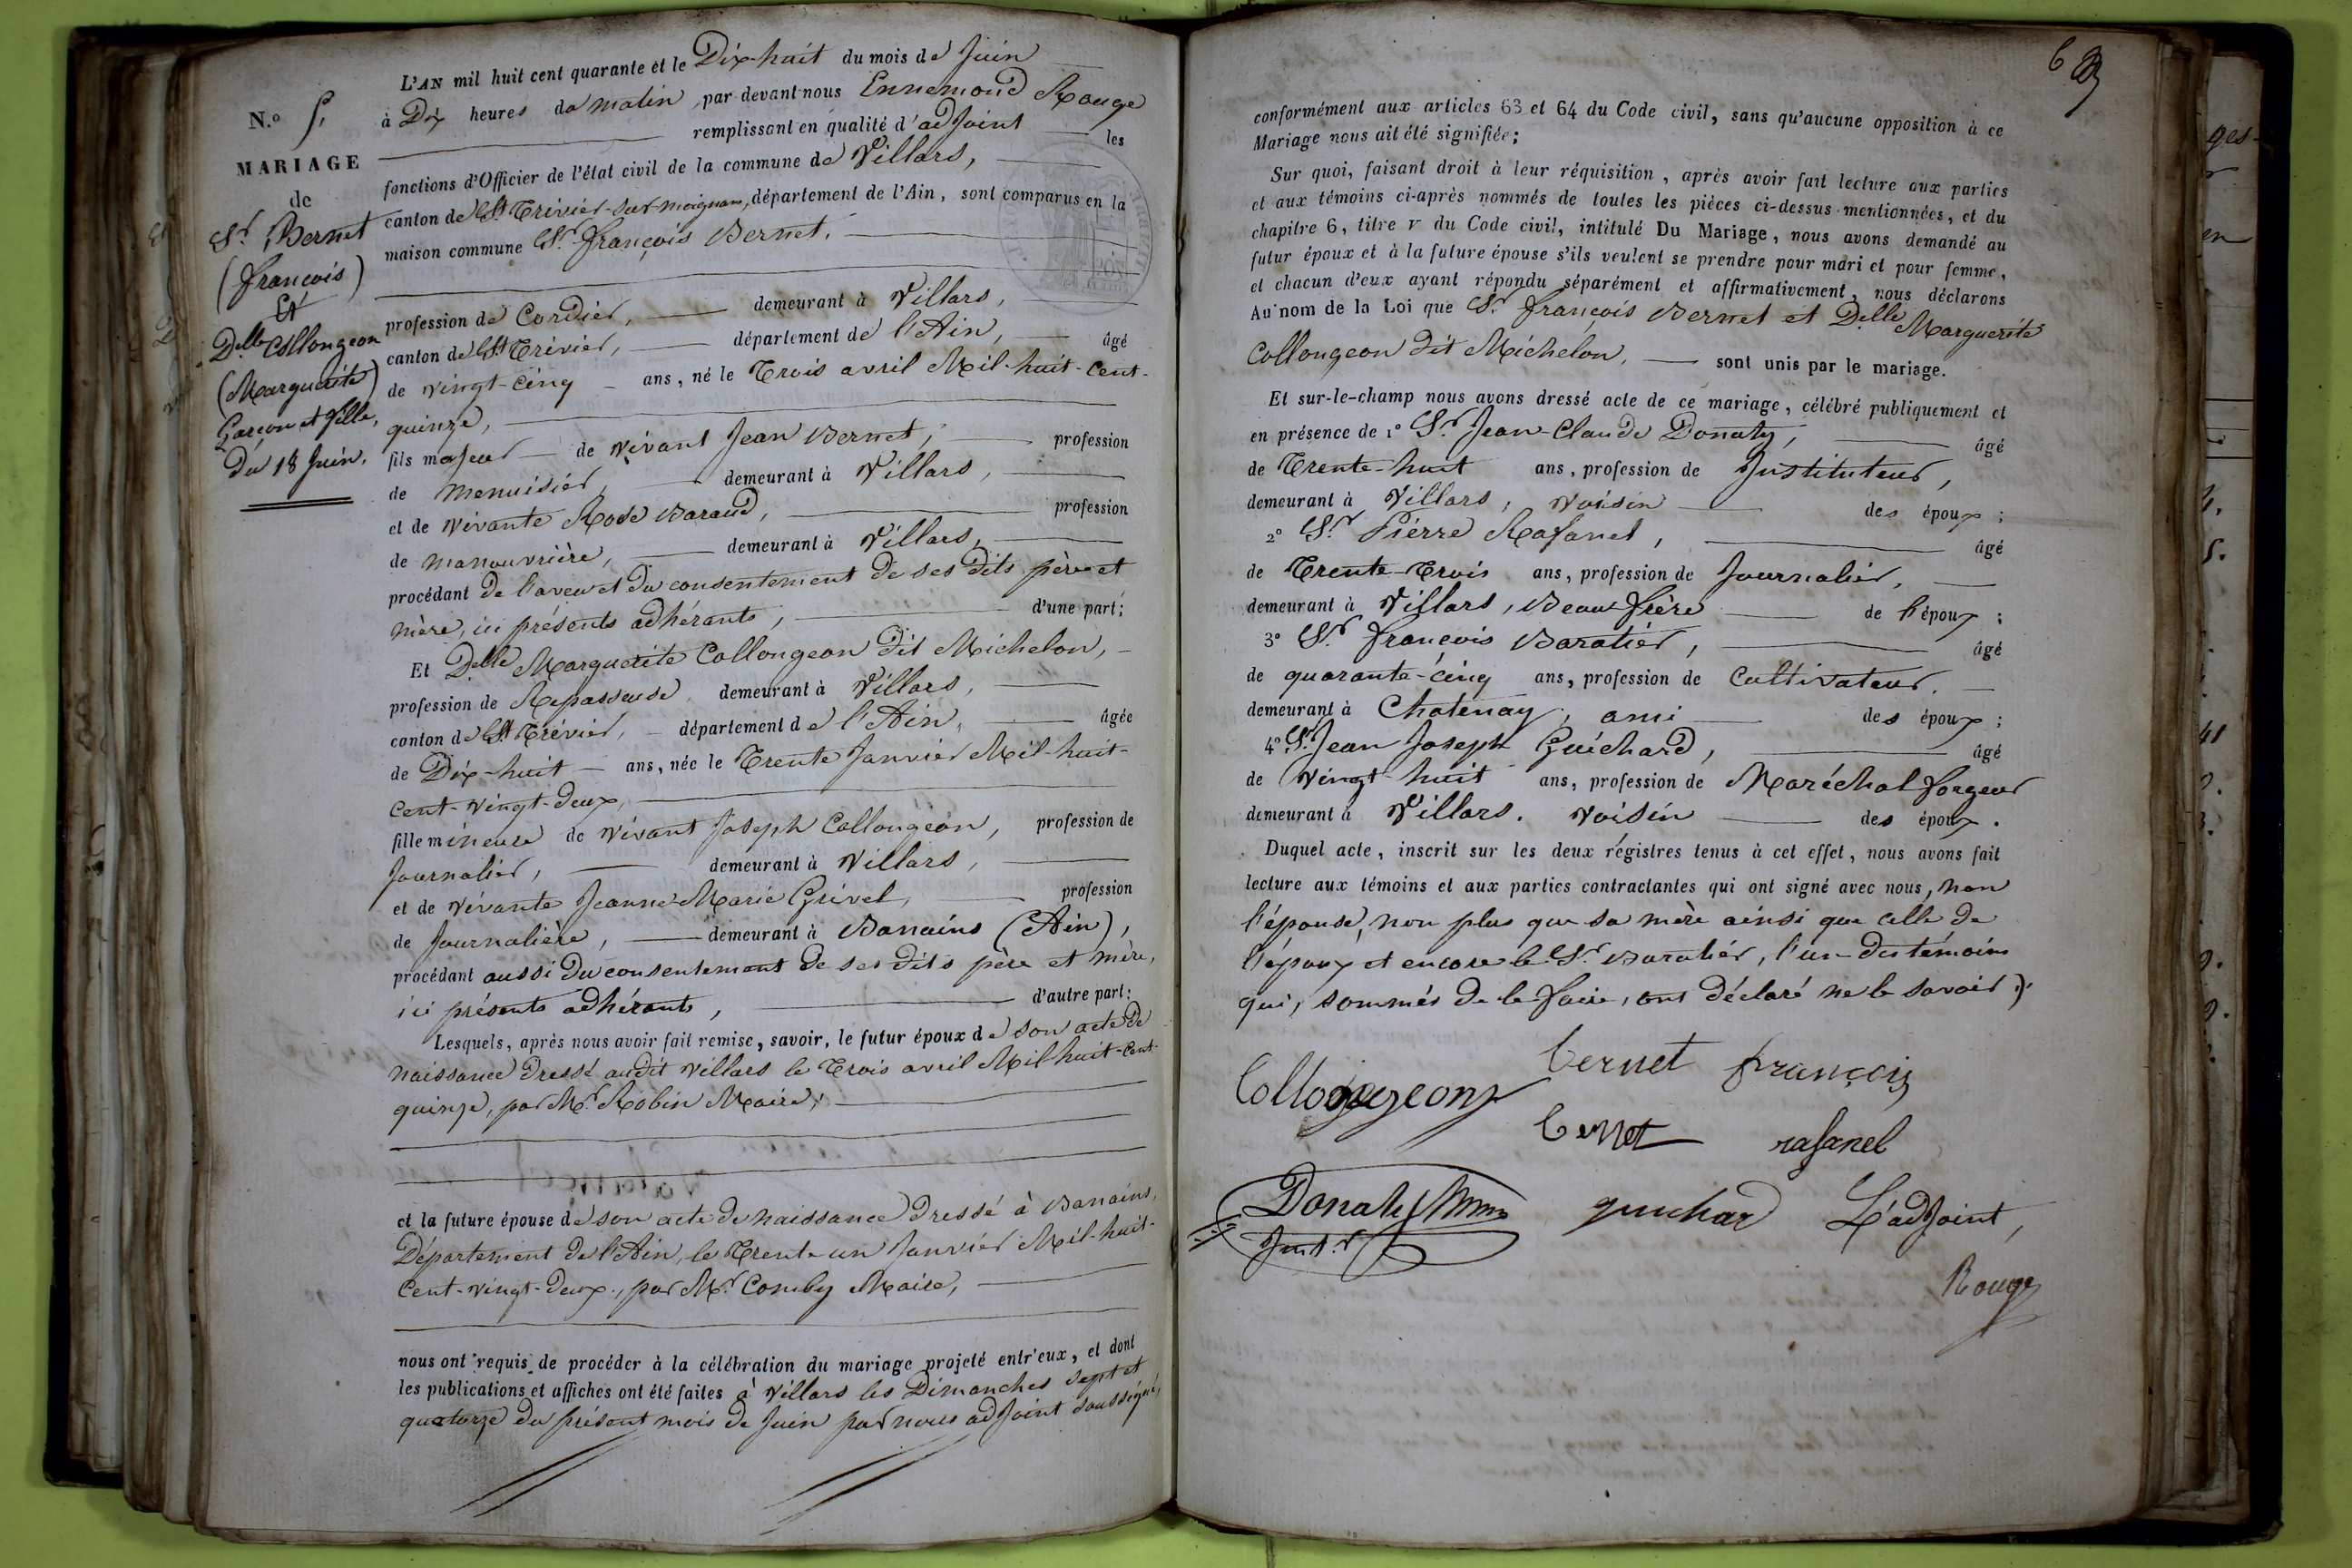 N.o 5.
MARIAGE
de
Sr. Bernet
(François)
Et
Delle Collongeon
(Marguerite)
Garçon et fille,
Du 18 Juin.
L'AN mil huit cent quarante et le Dix-huit du mois de Juin
à Dix heures du matin par-devant nous Ennemond Rouge
remplissant en qualité d'adjoint les
fonctions d'Officier de l'état civil de la commune de Villars,
canton de St Trivier-sur-moignans, département de l'Ain, sont comparus en la
maison commune Sr. François Bernet,
profession de Cordier, demeurant à Villars,
canton de St Trivier, département de l'Ain, âgé
de vingt-cinq ans, né le Trois avril Mil-huit-Cent-
quinze,
fils majeur de vivant Jean Bernet, profession
de menuisier, demeurant à Villars,
et de vivante Rose Baraud, profession
de manouvrière, demeurant à Villars,
procédant de l'aveu et du consentement de ses dits père et
mère, ici présents adhérants, d'une part;
Et Delle Marguerite Collongeon dit Michelon,
profession de Repasseuse demeurant à Villars,
canton de St Trivier, département de l'Ain, âgée
de Dix-huit ans, née le Trente Janvier Mil-huit-
Cent-vingt-deux,
fille mineure de vivant Joseph Collongeon, profession de
Journalier, demeurant à Villars,
et de vivante Jeanne Marie Grivel, profession
de Journalière, demeurant à Banains (Ain),
procédant aussi du consentement de ses dits père et mère,
ici présents adhérants, d'autre part;
Lesquels, après nous avoir fait remise, savoir, le futur époux de son acte de
naissance dressé audit Villars le Trois avril Mil huit-cent-
quinze, par Mr. Robin Maire;
et la future épouse de son acte de naissance dressé à Banains,
Département de l'Ain, le Trente un Janvier Mil-huit-
Cent-vingt-deux, par Mr. Comby Maire,
nous ont requis de procéder à la célébration du mariage projeté entr'eux, et dont
les publications et affiches ont été faites à Villars les Dimanches sept et
quatorze du présent mois de Juin par nous adjoint soussigné,
6
conformément aux articles 63 et 64 du Code civil, sans qu'aucune opposition à ce
Mariage nous ait été signifiée;
Sur quoi, faisant droit à leur réquisition, après avoir fait lecture aux parties
et aux témoins ci-après nommés de toutes les pièces ci-dessus mentionnées, et du
chapitre 6, titre V du Code civil, intitulé Du Mariage, nous avons demandé au
futur époux et à la future épouse s'ils veulent se prendre pour mari et pour femme,
et chacun d'eux ayant répondu séparément et affirmativement, nous déclarons
Au nom de la Loi que Sr. François Bernet et Delle Marguerite
Collongeon dit Michelon, sont unis par le mariage.
Et sur-le-champ nous avons dressé acte de ce mariage, célébré publiquement et
en présence de 1° Sr. Jean-Claude Donaty, âgé
de Trente-huit ans, profession de Instituteur,
demeurant à Villars, voisin des époux;
2° Sr. Pierre Rafanel, âgé
de Trente-Trois ans, profession de Journalier,
demeurant à Villars, Beau-frère de l'époux;
3° Sr. François Baratier, âgé
de quarante-cinq ans, profession de Cultivateur.
demeurant à Chatenay, ami des époux;
4° Sr. Jean Joseph Guichard, âgé
de vingt-huit ans, profession de Maréchal forgeur
demeurant à Villars. voisin des époux.
Duquel acte, inscrit sur les deux régistres tenus à cet effet, nous avons fait
lecture aux témoins et aux parties contractantes qui ont signé avec nous, non
l'épouse, non plus que sa mère ainsi que celle de
l'époux et encore le Sr. Baratier, l'un des témoins
qui, sommés de le faire, ont déclaré ne le savoir.
bernet françois
Collongeon
bernet rafanel
Donaty
guichard L'adjoint,
Rouge